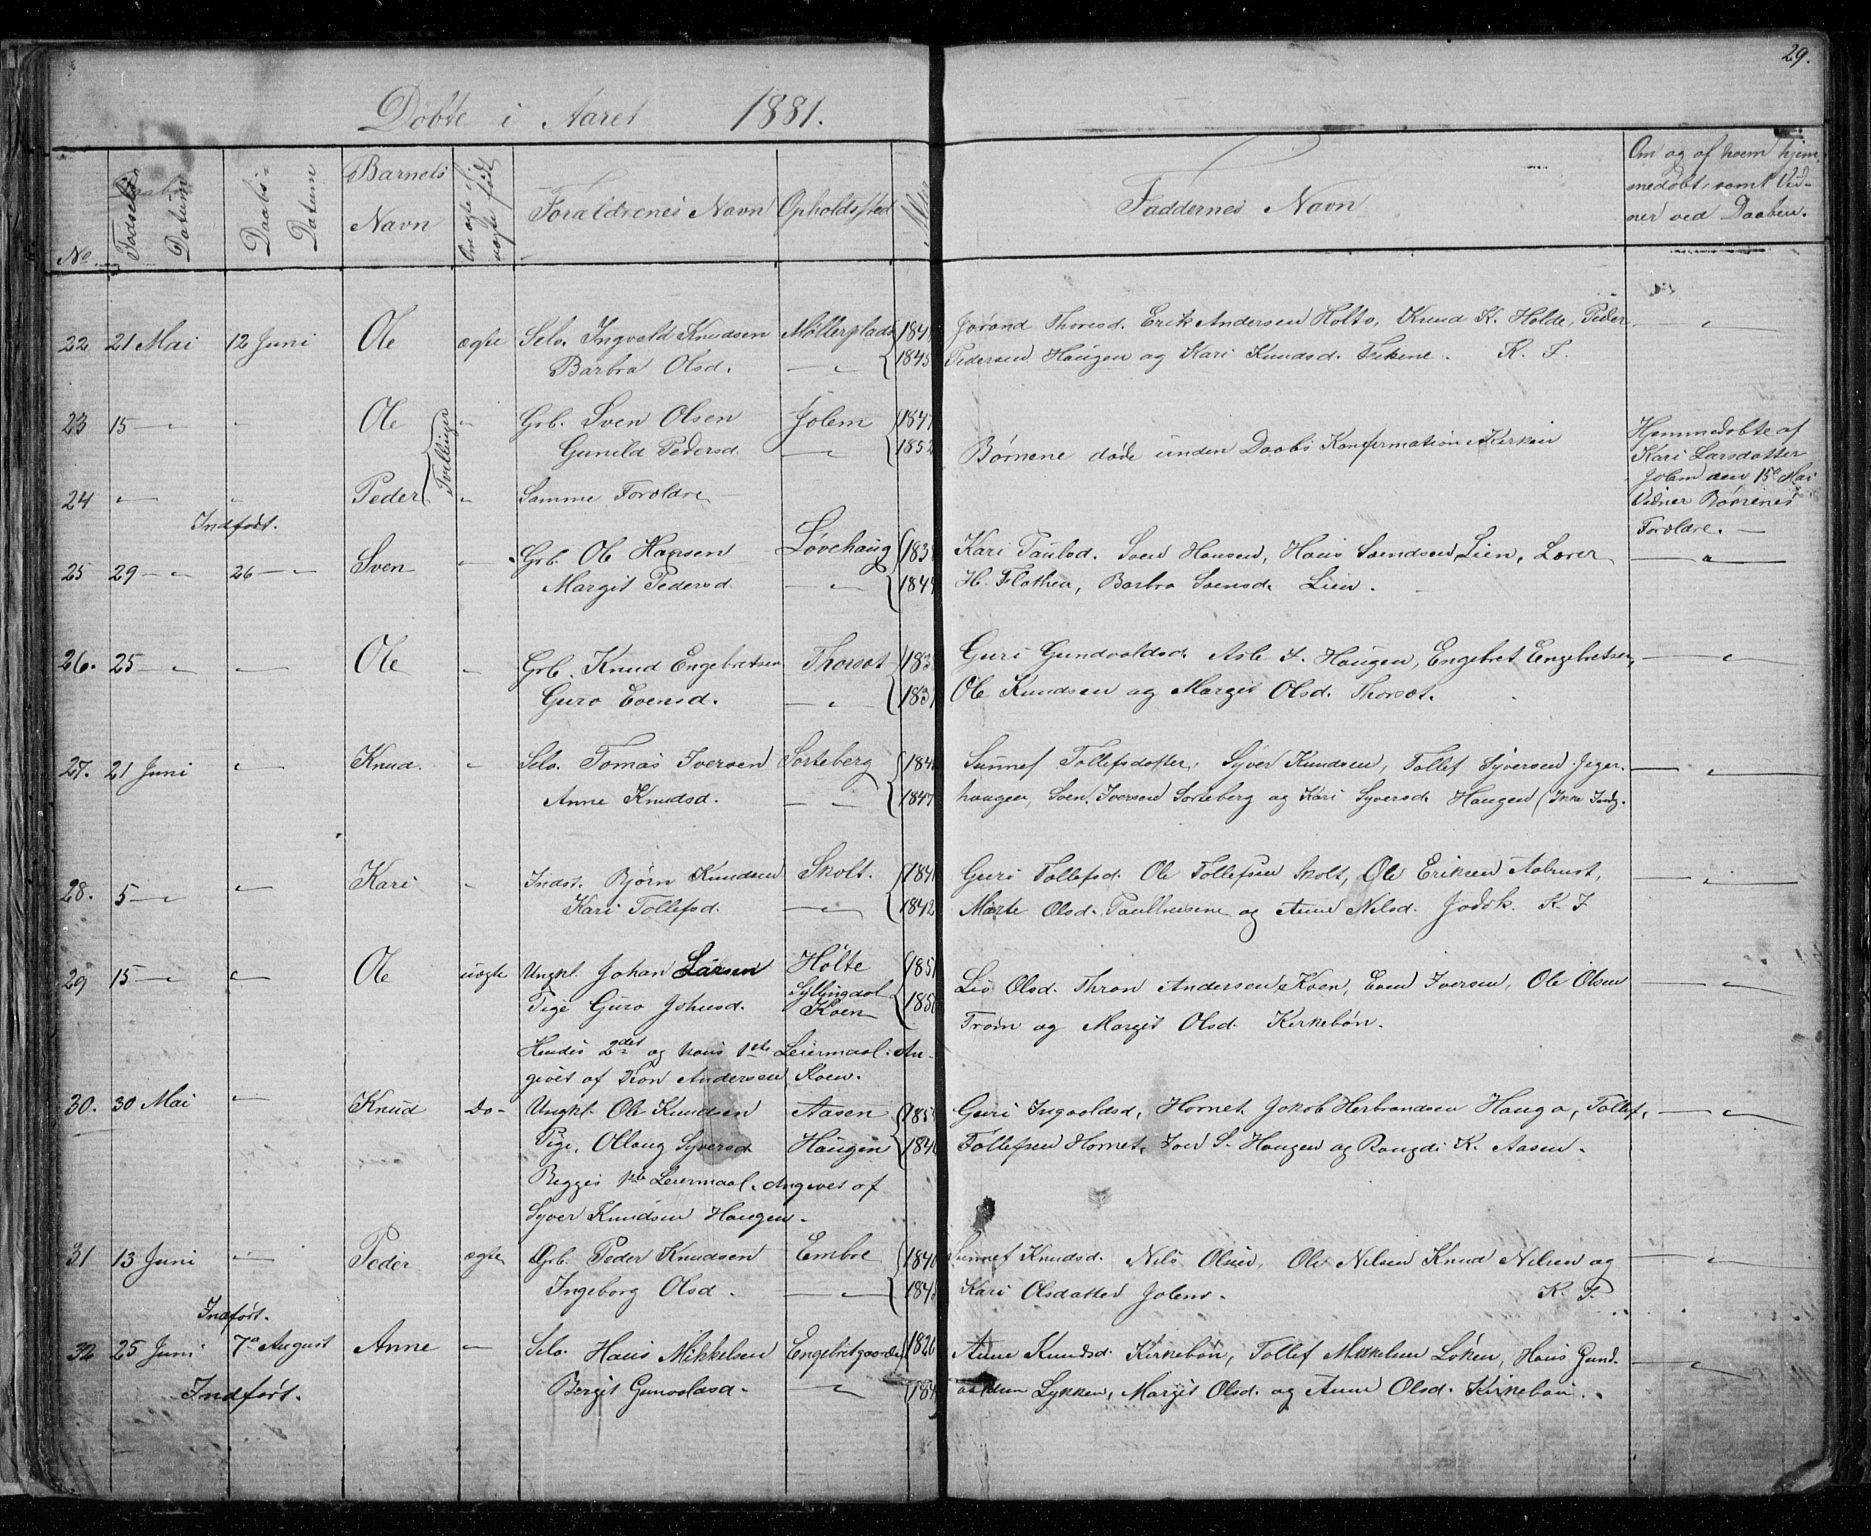 29.
Døbte i Aaret 1881.
No
Fødsels-
Datum
Daabs-
Datum
Barnets
Navn
Om ægte el.
uægte fød.
Forældrenes Navn
Opholdssted
Alder
Faddernes Navn
Om og af hvem hjem-
medøbt, samt Vid-
ner ved Daaben.
22 21 Mai 12 Juni Ole ægte Selv. Ingvald Knudsen Møllerplads
Barbra Olsd. 1845
Jørand Thoresd. Erik Andersen Holto, Knud K. Holde, Peder
Pedersen Haugen og Kari Knudsd. K. F.
23 15 " " Ole " Grb. Sven Olsen Jolem 1847
Gunild Pedersd. " 1852
Tvillinger
Børnene døde under Daabs Konfirmation i Kirken
Hjemmedøbte af
Kari Larsdatter
Jolem den 15de Mai
Vidner Børnenes
Forældre.
24 " " Peder " Samme Forældre
Indført.
25 29 " 26 " Sven " Grb. Ole Hansen Løvehaug
Margit Pedersd. " 1849
Kari Paulsd. Sven Hansen, Hans Svendsen Lien, Lærer
H. Flathen, Barbra Svensd. Lien. "
26. 25 " " Ole " Grb. Knud Engebretsen Thorsæt
Guro Evensd. "
Guri Gundvaldsd. Asle S. Haugen, Engebret Engebretsen, "
Ole Knudsen og Margit Olsd. Thorsæt.
27. 21 Juni " Knud. " Selv. Tomas Iversen Sorteberg
Anne Knudsd. " 1847
Sunnef Tollefsdatter, Syver Knudsen, Tollef Syversen Jeger- "
haugen, Sven Iversen Sorteberg og Kari Syversd. Haugen
28. 5 " " Kari " Indst. Bjørn Knudsen Skolt. 1841
Kari Tollefsd. " 1842
Guri Tollefsd. Ole Tollefsen Skolt, Ole Eriksen Aabrust, "
Marte Olsd. Paulhusene og Anne Nilsd. K. F
29 15 " " Ole uægte Ungkl. Johan Larsen Holte
Syllingdal
Pige Guro Johnsd. Koen
Hendes 2det og hans 1ste Leiermaal. An-
givet af Tron Andersen Koen.
Liv Olsd. Thron Andersen Koen, Even Iversen, Ole Olsen "
Trøim og Margit Olsd. Kirkebøn.
30. 30 Mai " Knud Do- Ungkl. Ole Knudsen Aasen
Pige, Ollaug Syversd. Haugen
Begges 1ste Leiermaal. Angivet af
Syver Knudsen Haugen.
Guri Ingvaldsd, Hornet, Jakob Herbrandsen Hauga, Tollef "
Tollefsen Hornet, Iver S. Haugen og Rangdi K. Aasen.
31 13 Juni " Peder ægte Grb. Peder Knudsen Embre
Ingeborg Olsd. "
Sunnef Knudsd. Nils Olsen, Ole Nilsen Knud Nilsen og "
Kari Olsdatter Jolem. K. F.
Indført.
32 25 Juni 7de August Anne " Selv. Hans Mikkelsen Engebretgaarden 1826
Bergit Gunvaldsd. "
Anne Knudsd. Kirkebøn, Tollef Mikkelsen Løken, Hans Gund-
valdsen Lykken, Margit Olsd. og Anne Olsd. Kirkebøn. "
Indført.